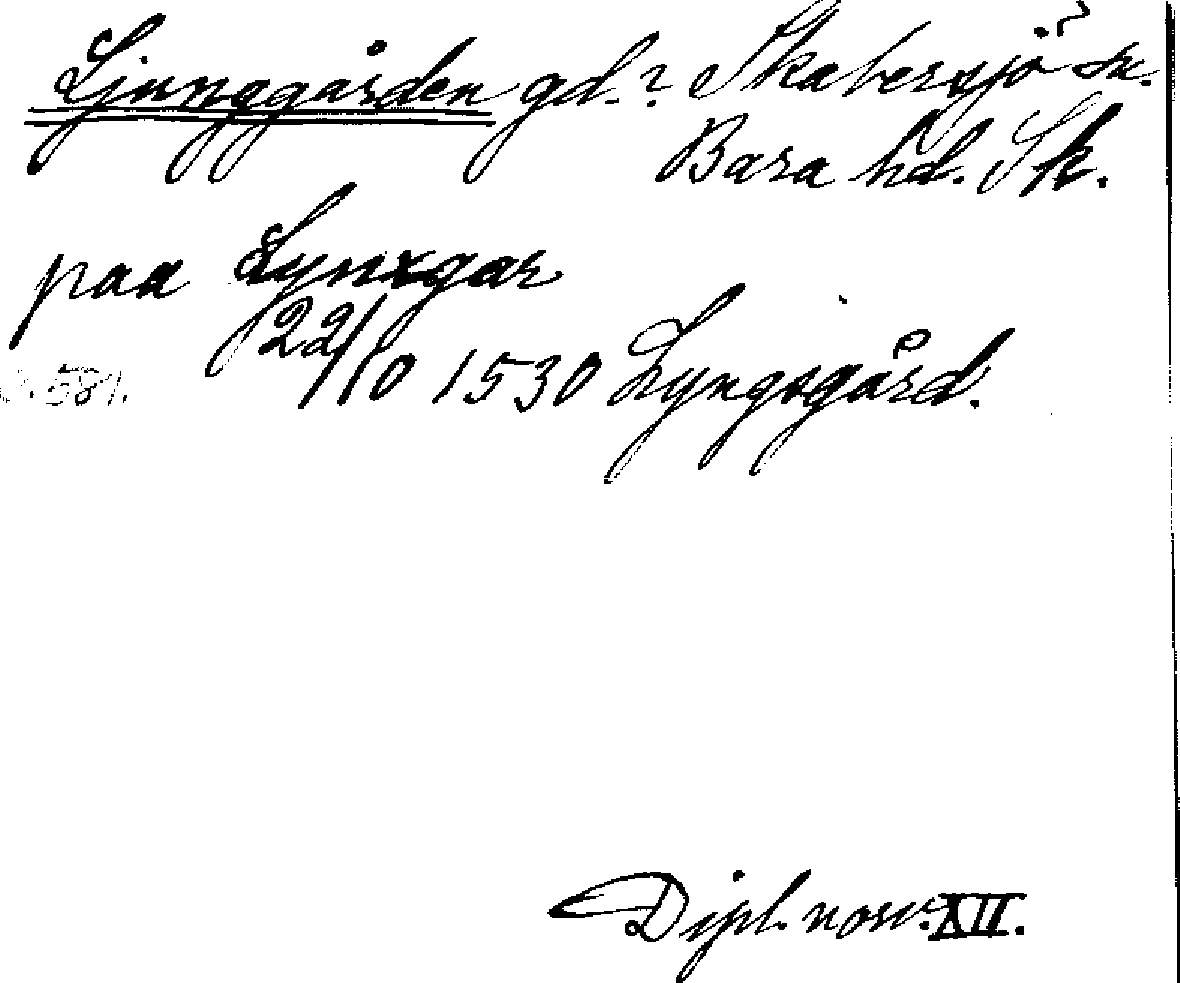 Ljunggården gd.? Skabersjö sn.
Bara hd. Sk.
paa Lynxgar
22/10 1530 Lyngsgård.
581.
Dipl. norv. XII.